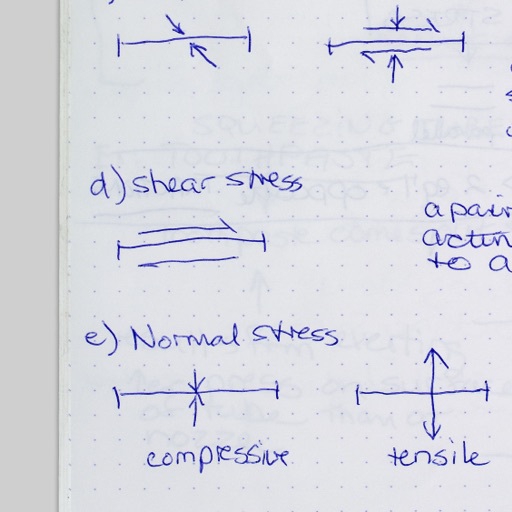 d) shear stress
a pair
actin
to a
e) Normal stress
compressive
tensile